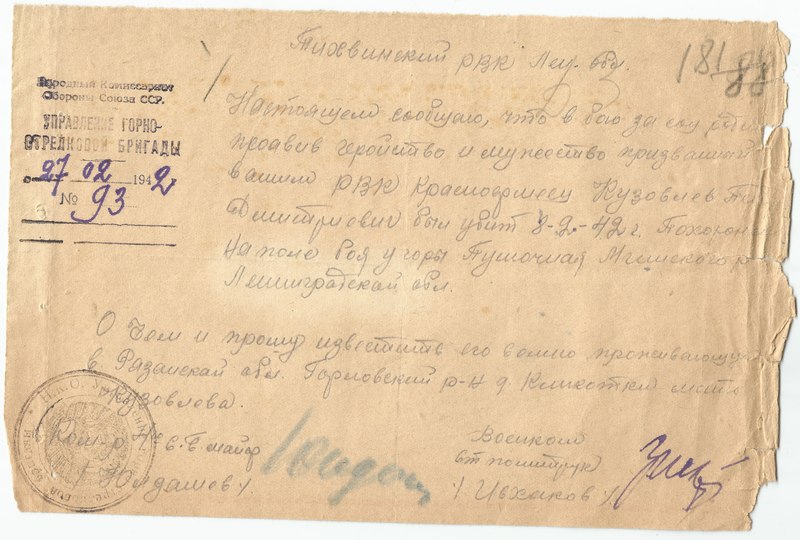 Тихвинский РВК Лен. обл.
Народный Комиссариат
Обороны Союза ССР.
УПРАВЛЕНИЕ ГОРНО-
СТРЕЛКОВОЙ БРИГАДЫ
27 02 1942
№ 93
Настоящем сообщаю, что в бою за соц
проявив геройство и мужество призванный
вашим РВК Красноармеец Кузовлев
Дмитриевич был убит 8-2-42 г. Похоронен
на поле боя у горы Пушочная Мгинского р
Ленинградской обл.
О чем и прошу известить его семью, проживающую
в Рязанской обл. Горловский р-н д. Кликотки мать
Кузовлева.
Ком-р
майор
/ Юлдашов /.
Военком
ст политрук
/ Исхаков /